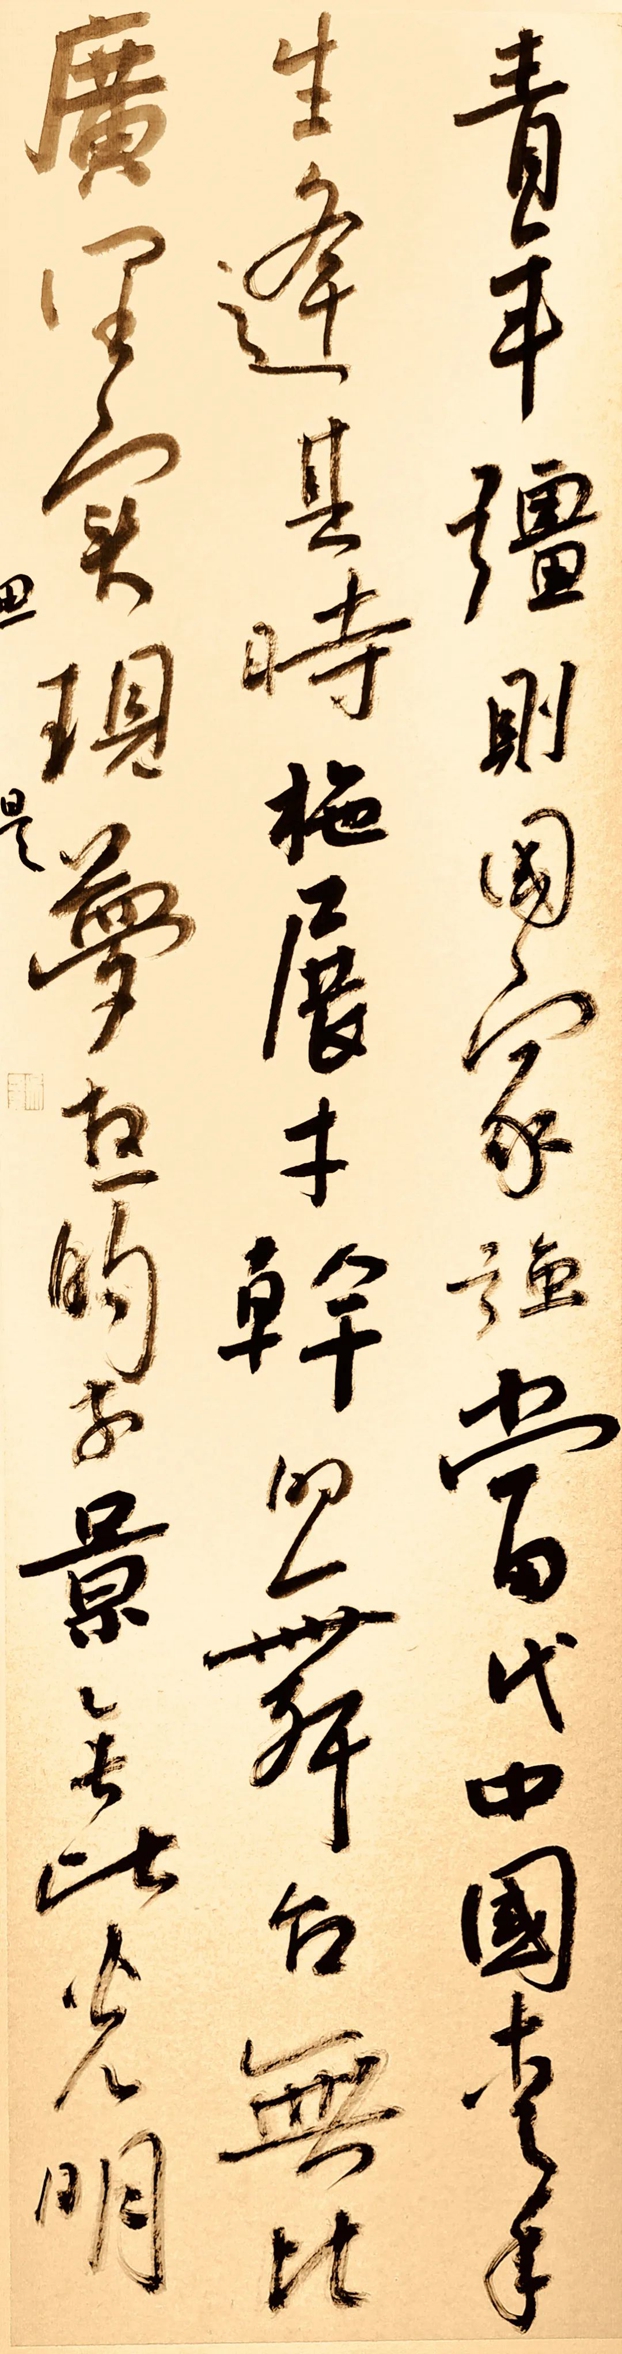 青年彊則國家強當代中國青年
生逢其時施展才幹的舞台無比
廣闊實現夢想的前景無比光明